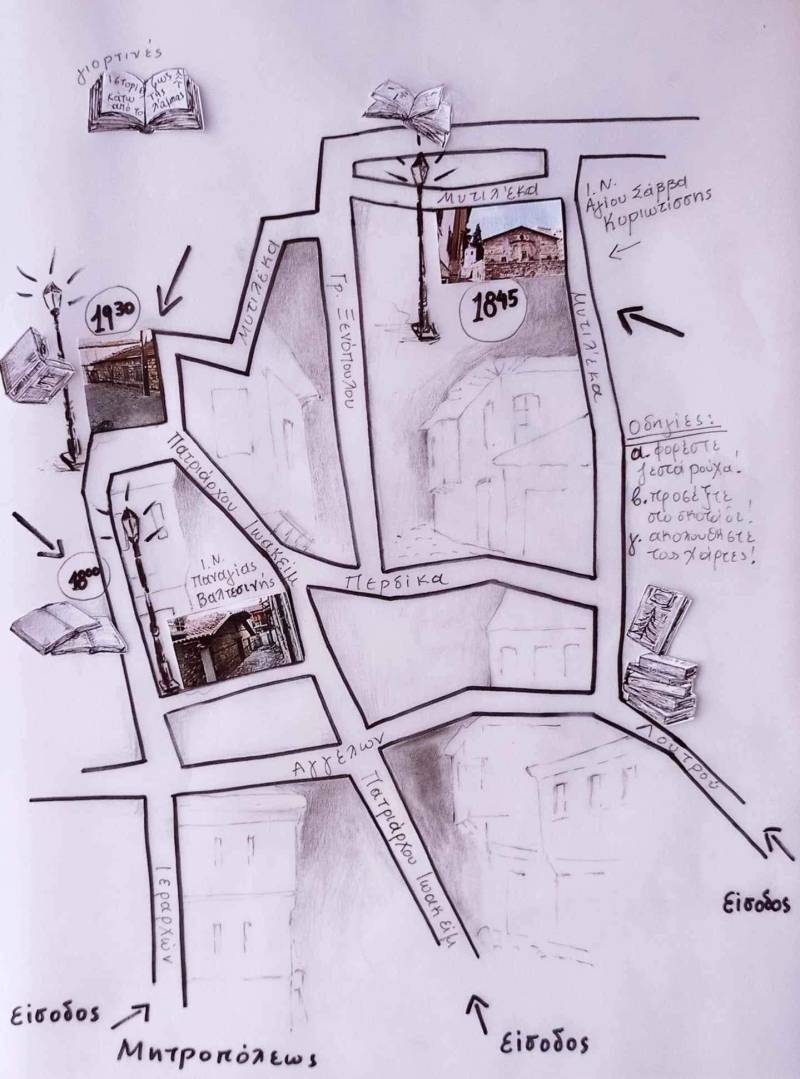 γιορτινές
ιστορίες
κάτω
από το
φως
της
λάμπας
Μυτιλέκα
Ι.Ν.
Αγίου Σάββα
Κυριωτίσσης
Μυτιλέκα
Γρ. Ξενόπουλου
1845
19³⁰
Μυτιλέκα
Οδηγίες:
α. φορέστε
ζεστά ρούχα!
β. προσέξτε
στο σκοτάδι!
γ. ακολουθήστε
τους χάρτες!
Πατριάρχου Ιωακείμ
18⁰⁰
Ι.Ν.
Παναγίας
Βαλτεσινής
Περδίκα
Αγγέλων
Λουτρού
Πατριάρχου Ιωακείμ
Ιεραρχών
είσοδος
είσοδος
Μητροπόλεως
είσοδος